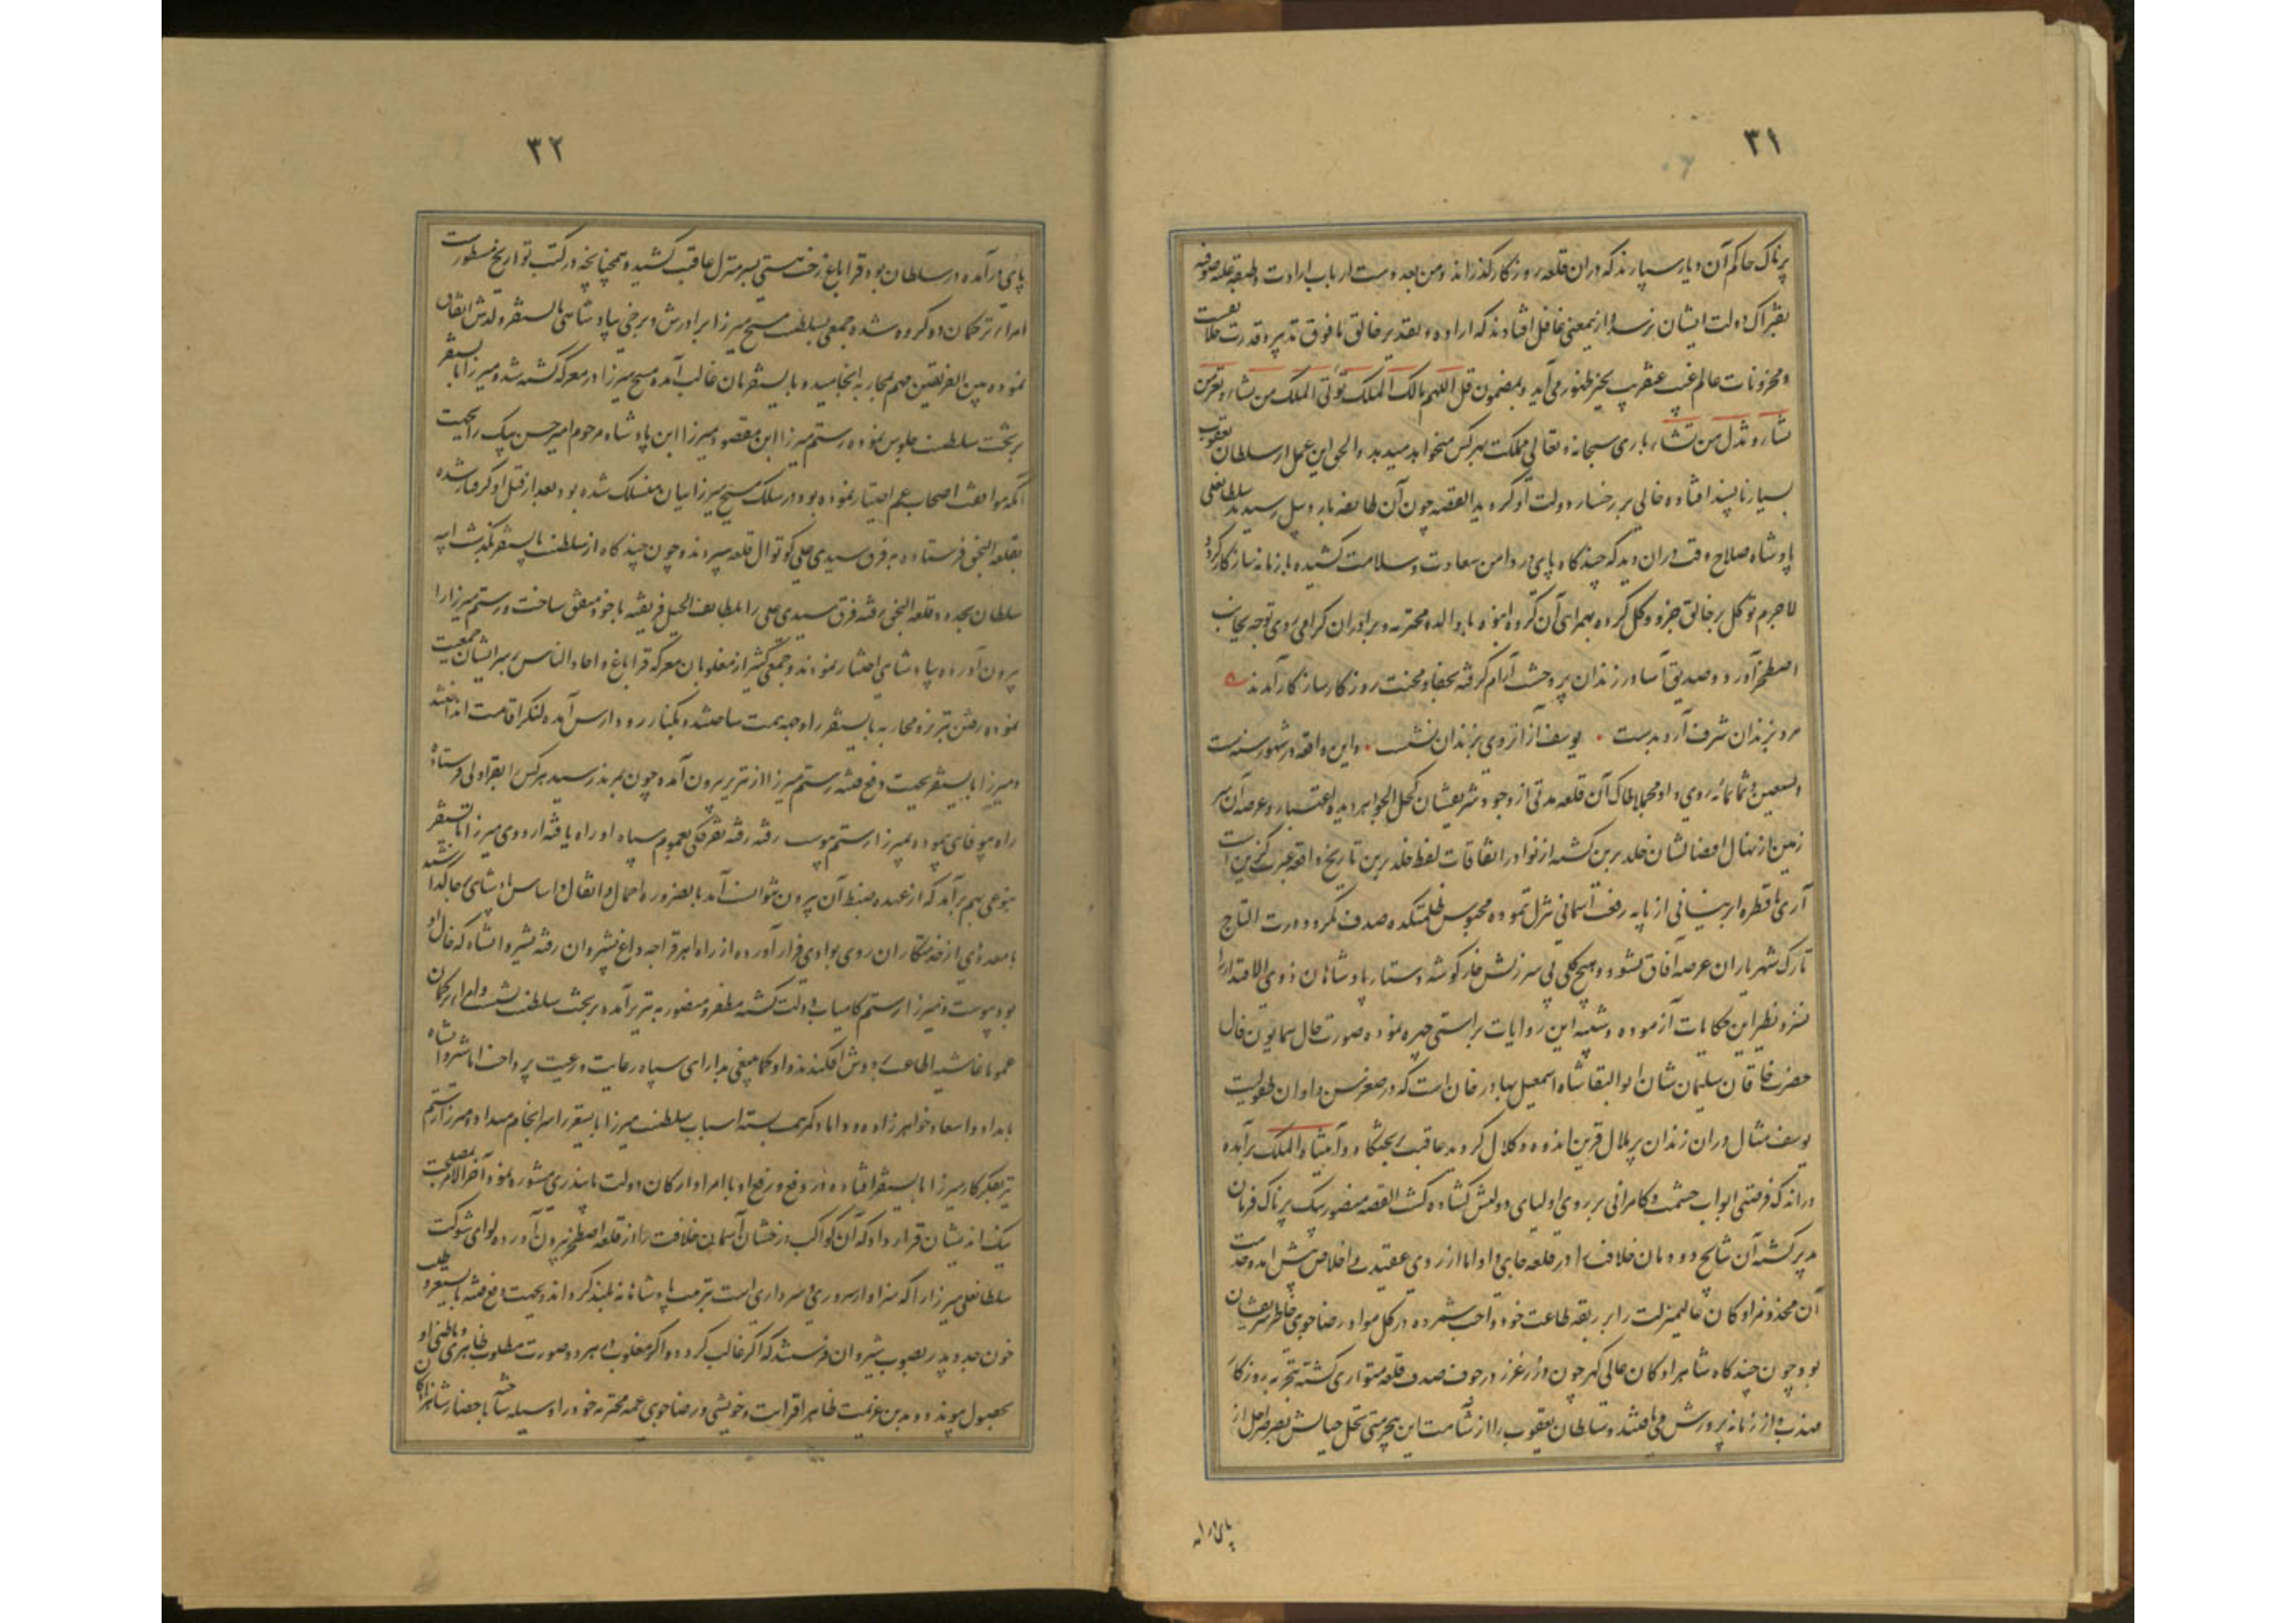 ۳۱
پرناک حاکم آن دیار سپارند که در آن قلعه روزگار گذرانند و من بعد دست ارباب ارادت و طبقه علیه صوفیه
بفتراک دولت ایشان نرسد و ازین معنی غافل افتادند که اراده و تقدیر خالق مافوق تدبیر و قدرت خلایق است
و مخزونات عالم غیب عنقریب بحیز ظهور می آید و بمضمون قل اللهم مالک الملک تؤتی الملک من تشاء و تعز من
تشاء و تذل من تشاء باری سبحانه و تعالی مملکت بهر کس میخواهد میدهد و الحق این عمل از سلطان یعقوب
بسیار ناپسند افتاده خالی بر رخسار دولت او گردید القصه چون آن طایفه باردبیل رسیدند سلطانعلی
پادشاه صلاح وقت در آن دید که چند گاه پای در دامن سعادت و سلامت کشیده با زمانه سازگار گردد
لاجرم توکل بر خالق جزو و کل کرده بهمراهی آن گروه انبوه با والده محترمه و برادران گرامی روی توجه بجانب
اصطخر آورد و صدیق آسا در زندان پر وحشت آرام گرفته بجفا و محنت روزگار سازگار آمدند
مرد بزندان شرف آرد بدست • یوسف از آن روی بزندان نشست • و این واقعه در شهور سنه ست
و تسعین و ثمانمائه روی داد مجملا خاک آن قلعه مدتی از وجود شریفشان کحل الجواهر دیده اعتبار و عرصه آن سر
زمین از نهال افضالشان خلد برین گشته از نوادر اتفاقات لفظ خلد برین تاریخ واقعه عبرت گزین است
آری تا قطره ابر نیسانی از پایه رفعت آسمانی تنزل ننموده محبوس ظلمتکده صدف نگردد درة التاج
تارک شهریاران عرصه آفاق نشود و هیچ گلی بی سرزنش خار گوشه دستار پادشاهان ذوی الاقتدار را
نسزد نظیر این حکایات آزموده و شبیه این روایات براستی چهره نموده صورت حال همایون فال
حضرت خاقان سلیمان شان ابوالبقا شاه اسمعیل بهادر خان است که در صغر سن و اوان طفولیت
یوسف مثال در آن زندان پر ملال قرین اندوه و کلال گردید عاقبت بجشکا و آتیناه الملک برآمده
در اندک فرصتی ابواب حشمت و کامرانی بر روی اولیای دولتش گشاده گشت القصه منصور بیک پرناک فرمان
پذیر گشته آن شایخ دودمان خلافت را در قلعه جای داد اما از روی عقیدت و اخلاص پیش آمد و خدمت
آن مخدوم زادگان عالیمنزلت را بر ربقه طاعت خود واجب شمرده در کل مواد رضاجوی خاطر شریفشان
بود چون چند گاه شاهزادگان عالی گهر چون در غرر در جوف صدف قلعه متواری گشته بتجربه روزگار
مهذب و از زمانه پرورش می یافتند و سلطان یعقوب را از شآمت این بیحرمتی نخل حیاتش بصرصر اجل از
پای درآمده
۳۲
پای درآمده در سلطان بود قراباغ رخت هستی بسرمنزل عاقبت کشید و همچنانچه در کتب تواریخ مسطور است
امراء ترکمان دو گروه شده جمعی بسلطنت مسیح میرزا برادرش و برخی بپادشاهی بایسنقر ولدش اتفاق
نموده بین الفریقین مهم بمحاربه انجامید و بایسنقریان غالب آمده مسیح میرزا در معرکه کشته شد و میرزا بایسنقر
بر تخت سلطنت جلوس نموده رستم میرزا ابن مقصود میرزا ابن پادشاه مرحوم امیر حسن بیک را بجهت
آنکه موافقت اصحاب عم اختیار نموده بود و در سلک مسیح میرزاییان منسلک شده بود بعد از قتل او گرفتار شده
بقلعه النجق فرستاده به قرق سیدی علی کوتوال قلعه سپردند و چون چند گاه از سلطنت بایسنقر بگذشت ایبه
سلطان بحدود قلعه النجق رفته قرق سیدی علی را بلطایف الحیل فریفته با خود متفق ساخت و رستم میرزا را
بیرون آورده بپادشاهی اختیار نمودند و جمعی کثیر از مغلوبان معرکه قراباغ و احاد الناس بر سر ایشان جمعیت
نموده رفتن تبریز و محاربه بایسنقر را وجهه همت ساختند و بکنار رود ارس آمده لنگر اقامت انداختند
و میرزا بایسنقر بجهت دفع فتنه رستم میرزا از تبریز بیرون آمده چون بمرند رسید هر کس را بقراولی فرستاد
راه بیوفائی پیموده بمیرزا رستم پیوست رفته رفته تفرقگی بعموم سپاه او راه یافته اردوی میرزا بایسنقر
بنوعی بهم برآمد که از عهده ضبط آن بیرون نتوانست آمد بالضروره احمال و اثقال و اساس پادشاهی بجا گذاشته
با معدودی از خدمتکاران روی بوادی فرار آورده از راه اهر قراجه داغ بشیروان رفته بشیروانشاه که خال او
بود پیوست و میرزا رستم کامیاب دولت گشته مظفر و منصور به تبریز آمده بر تخت سلطنت نشست و امراء ترکمان
عموما غاشیه اطاعتش بر دوش افکندند و او کما ینبغی بدارای سپاه و رعایت رعیت پرداخت اما شروانشاه
بامداد و اسعاد خواهرزاده و داماد کمر همت بسته اسباب سلطنت میرزا بایسنقر را سرانجام میداد و میرزا رستم
نیز بفکر کار میرزا بایسنقر افتاده در دفع و رفع او با امرا و ارکان دولت بایندری مشوره نمود آخر الامر بمصلحت
نیک اندیشان قرار داد که آن کواکب درخشان آسمان خلافت را از قلعه اصطخر بیرون آورده لوای شوکت
سلطانعلی میرزا را که سزاوار سروری و سرداری است بتربیت پادشاهانه بلند گرداند و بجهت دفع فتنه بایسنقر و طلب
خون جد و پدر بصوب شیروان فرستد که اگر غالب گردد و اگر مغلوب بهر دو صورت مطلوب ظاهری و باطنی او
بحصول پیوندد و بدین عزیمت ظاهر اقرابت و خویشی و رضاجوی عمه محترمه خود را وسیله ساخته باحضار شاهزادگان